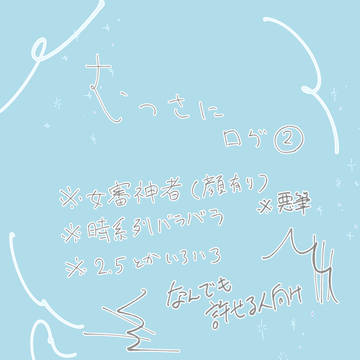 むっさに
ログ②
※女審神者(顔有り)
※悪筆
※時系列バラバラ
※2.5とかいろいろ
なんでも
許せる人向け